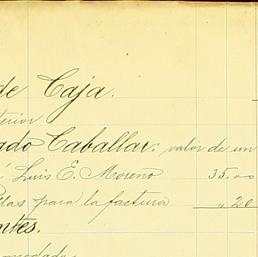 de Caja.
terior
ado Caballar: valor de un
Luis E. Moreno 35.00
llas para la factura " 20
ntes.